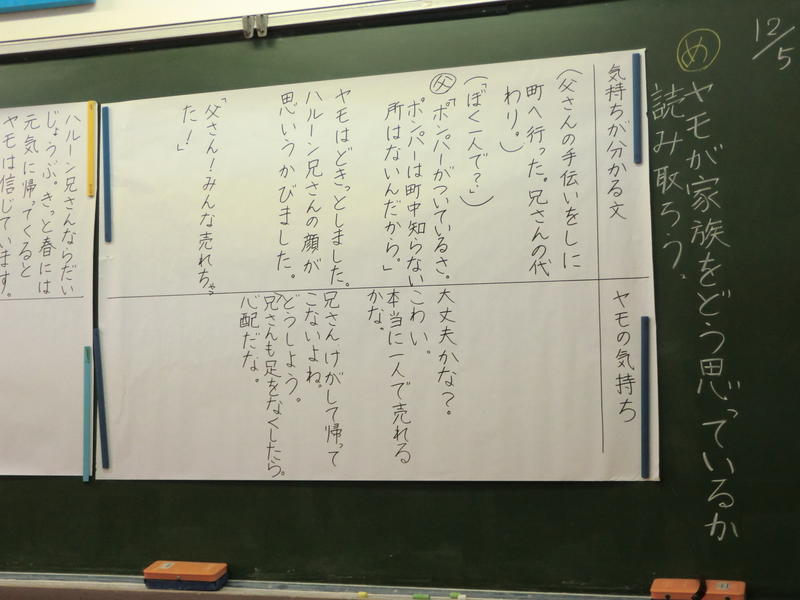 12/5
め ヤモが家族をどう思っているか
読み取ろう。
気持ちが分かる文
ヤモの気持ち
(父さんの手伝いをしに
町へ行った。兄さんの代
わり。)
(「ぼく一人で?」)
父「ポンパーがついているさ。
ポンパーは町中知らない
所はないんだから。」
大丈夫かな?。
こわい。
本当に一人で売れる
かな。
ヤモはどきっとしました。
ハルーン兄さんの顔が
思いうかびました。
兄さんけがして帰って
こないよね。
どうしよう。
兄さんも足をなくしたら。
心配だな。
「父さん!みんな売れちゃっ
た!」
ハルーン兄さんならだい
じょうぶ。きっと春には
元気に帰ってくると
ヤモは信じています。